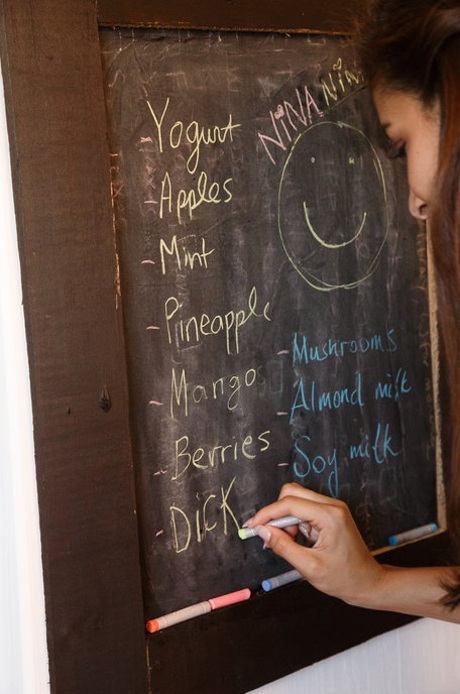 NINA NINA
- Yogurt
- Apples
- Mint
- Pineapple
- Mangos
- Berries
- DICK
- Mushrooms
- Almond milk
- Soy milk